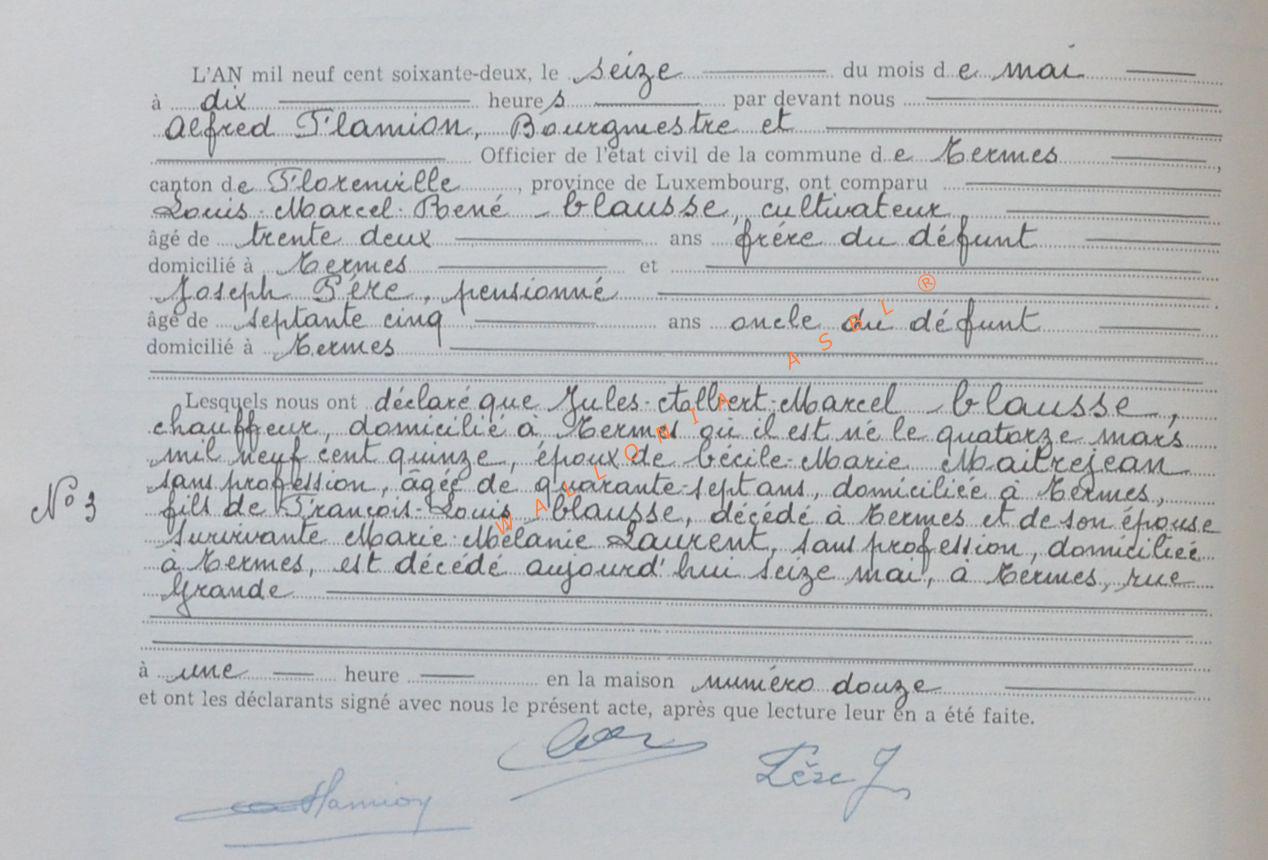 L'AN mil neuf cent soixante-deux, le seize du mois de mai
à dix heures par devant nous
Alfred Flamion, Bourgmestre et
Officier de l'état civil de la commune de Termes,
canton de Florenville, province de Luxembourg, ont comparu
Louis-Marcel-René Clausse, cultivateur,
âgé de trente deux ans frére du défunt
domicilié à Termes et
Joseph Fére, pensionné
âgé de septante cinq ans oncle du défunt
domicilié à Termes
Lesquels nous ont déclaré que Jules-Albert-Marcel Clausse,
chauffeur, domicilié à Termes où il est né le quatorze mars
mil neuf cent quinze, époux de Cécile-Marie Maitrejean
sans profession, âgée de quarante-sept ans, domiciliée à Termes,
N° 3
fils de François-Louis Clausse, décédé à Termes et de son épouse
survivante Marie-Mélanie Laurent, sans profession, domiciliée
à Termes, est décédé aujourd'hui seize mai, à Termes, rue
Grande
à une heure en la maison numéro douze
et ont les déclarants signé avec nous le présent acte, après que lecture leur en a été faite.
Flamion
Fère J
WALLONIA ASBL ®